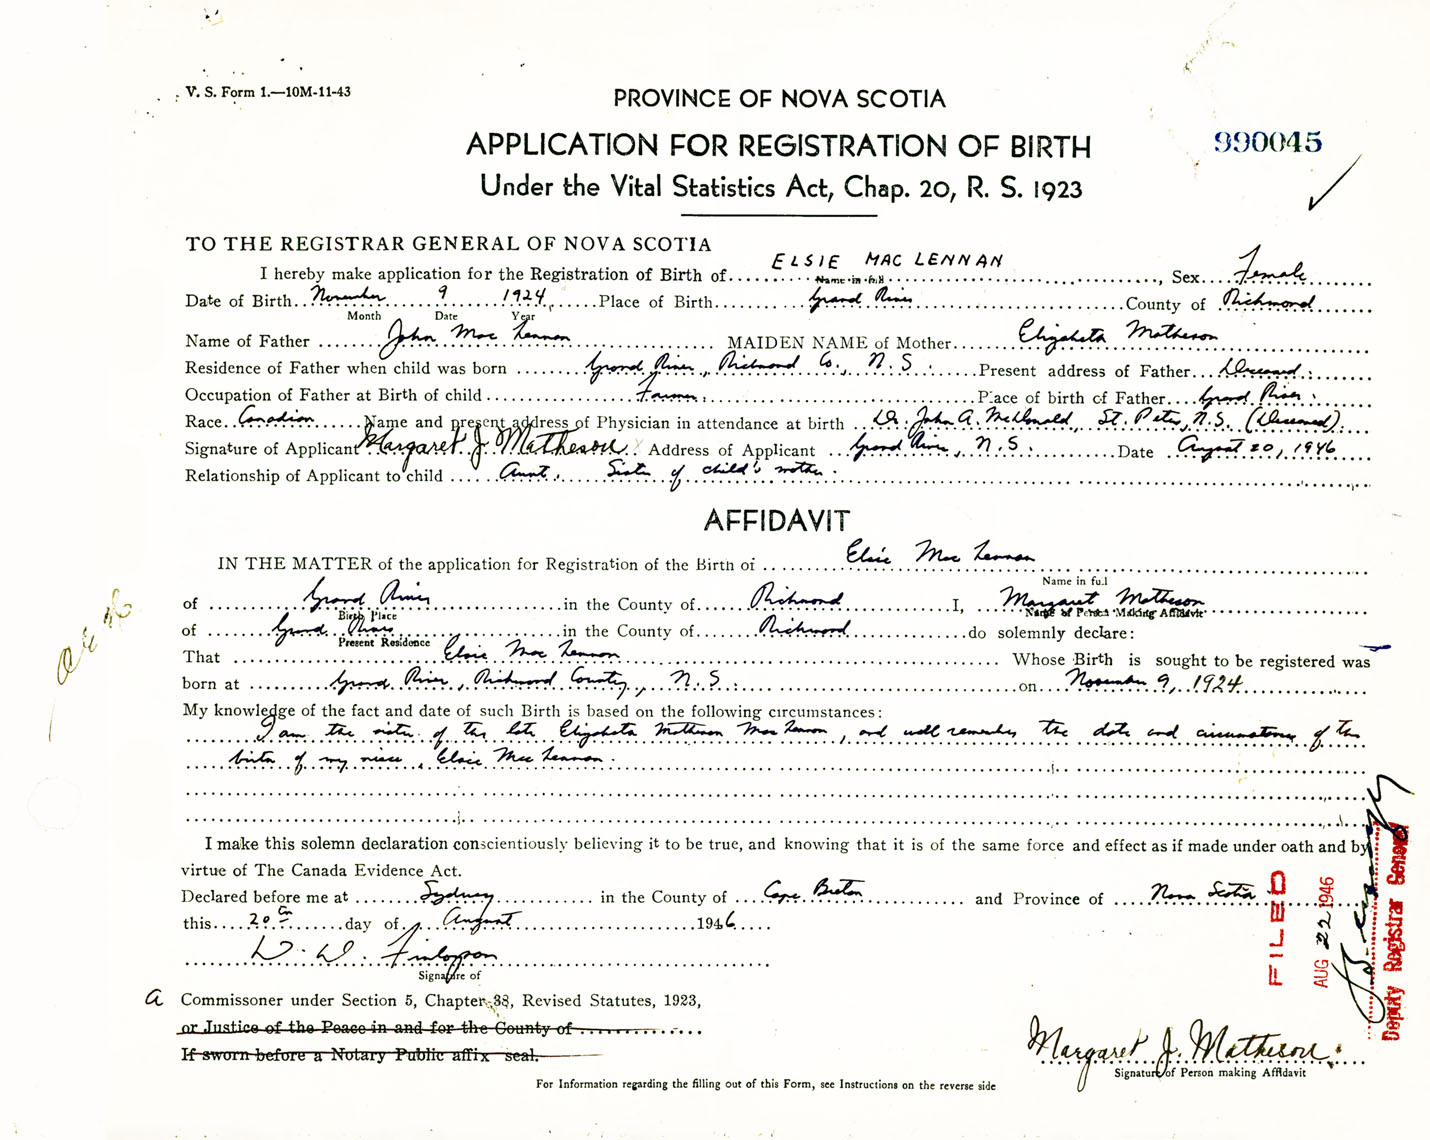 V. S. Form 1.—10M-11-43
PROVINCE OF NOVA SCOTIA
APPLICATION FOR REGISTRATION OF BIRTH
990045
Under the Vital Statistics Act, Chap. 20, R. S. 1923
TO THE REGISTRAR GENERAL OF NOVA SCOTIA
I hereby make application for the Registration of Birth of ELSIE MAC LENNAN, Sex Female
Name in full
Date of Birth November 9 1924, Place of Birth Grand River County of Richmond
Month Date Year
Name of Father John Mac Lennan MAIDEN NAME of Mother Elizabeth Matheson
Residence of Father when child was born Grand River, Richmond Co., N. S. Present address of Father Deceased.
Occupation of Father at Birth of child Farmer. Place of birth of Father Grand River.
Race Canadian Name and present address of Physician in attendance at birth Dr. John A. McDonald, St. Peters, N.S. (Deceased).
Signature of Applicant Margaret J. Matheson Address of Applicant Grand River, N. S. Date August 20, 1946
Relationship of Applicant to child Aunt, Sister of child's mother.
AFFIDAVIT
IN THE MATTER of the application for Registration of the Birth of Elsie Mac Lennan
Name in full
of Grand River in the County of Richmond I, Margaret Matheson
Birth Place Name of Person Making Affidavit
of Grand River in the County of Richmond do solemnly declare:
Present Residence
That Elsie Mac Lennan Whose Birth is sought to be registered was
born at Grand River, Richmond County, N. S. on November 9, 1924
My knowledge of the fact and date of such Birth is based on the following circumstances:
I am the sister of the late Elizabeth Matheson Mac Lennan, and well remember the date and circumstances of the
birth of my niece, Elsie Mac Lennan.
I make this solemn declaration conscientiously believing it to be true, and knowing that it is of the same force and effect as if made under oath and by
virtue of The Canada Evidence Act.
Declared before me at Sydney in the County of Cape Breton and Province of Nova Scotia
this 20th day of August 1946
D. W. Finlayson
Signature of
a Commissoner under Section 5, Chapter 38, Revised Statutes, 1923,
or Justice of the Peace in and for the County of
If sworn before a Notary Public affix seal.
Margaret J. Matheson.
Signature of Person making Affidavit
For Information regarding the filling out of this Form, see Instructions on the reverse side
FILED
AUG 22 1946
Deputy Registrar General